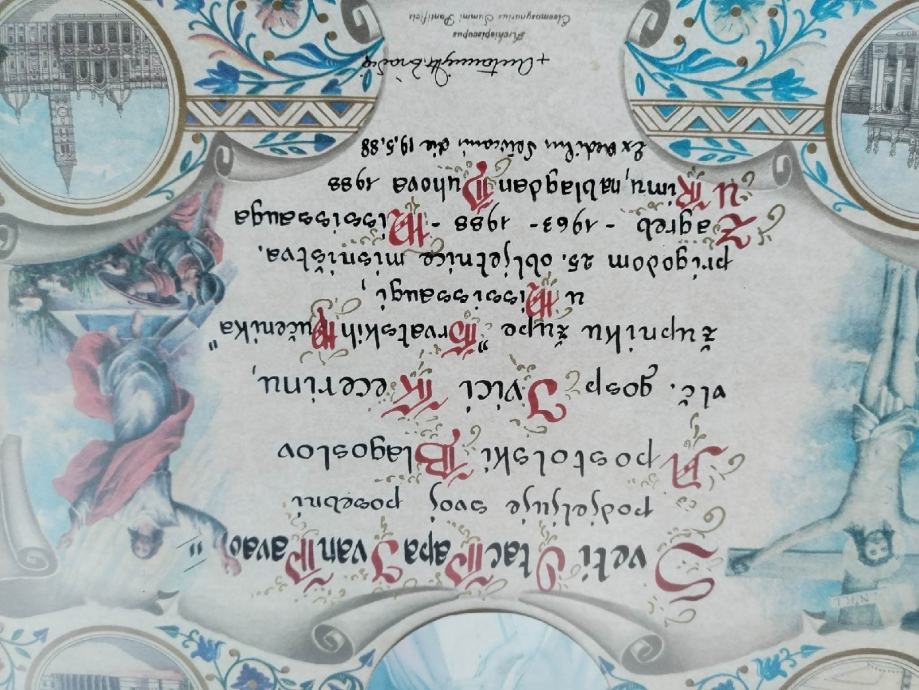 Sveti Otac Papa Ivan Pavao II
podjeljuje svoj posebni
Apostolski Blagoslov
vlč. gosp. Ivici Kecerinu,
župniku župe "Hrvatskih Mučenika"
u Mississaugi,
prigodom 25. obljetnice misništva.
Zagreb - 1963 - 1988 - Mississauga
U Rimu, na blagdan Duhova 1988
Ex Aedibus Vaticanis die 19.5.88
Archiepiscopus
Eleemosynarius Summi Pontificis